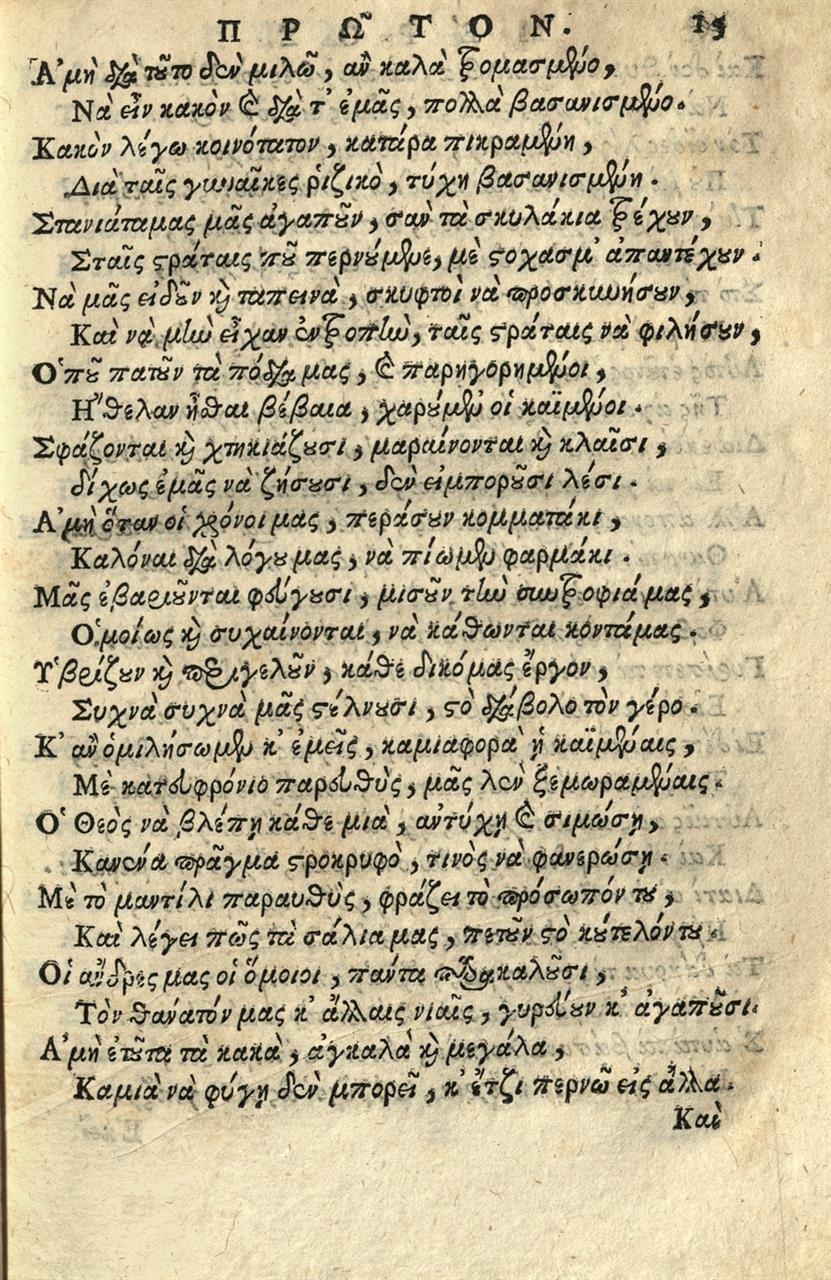 ΠΡΩ͂ΤΟΝ. 15
Ἀμὴ διὰ τοῦτο δὲν μιλῶ, ἂν καλὰ τρομασμένο,
Νὰ εἶν κακὸν καὶ διὰ τ' ἐμᾶς, πολλὰ βασανισμένο.
Κακὸν λέγω κοινότατον, κατάρα πικραμένη,
Διὰ ταῖς γυναῖκες ῥιζικὸ, τύχη βασανισμένη.
Στανιάταμας μᾶς ἀγαποῦν, σὰν τὰ σκυλάκια τρέχουν,
Σταῖς στράταις ποῦ περνούμενε, μὲ στοχασμ' ἀπαντέχουν.
Νὰ μᾶς εἰδοῦν καὶ ταπεινὰ, σκυφτοὶ νὰ προσκυνήσουν,
Καὶ νὰ μὴν εἶχαν ἐντροπὴν, ταῖς στράταις νὰ φιλήσουν,
Ὁποῦ πατοῦν τὰ πόδια μας, καὶ παρηγορημένοι,
Ἤθελαν ἦθαι βέβαια, χαρούμεν' οἱ καϊμένοι.
Σφάζονται καὶ χτηκιάζουσι, μαραίνονται καὶ κλαῖσι,
δίχως ἐμᾶς νὰ ζήσουσι, δὲν εἰμποροῦσι λέσι.
Ἀμὴ ὅταν οἱ χρόνοι μας, περάσουν κομματάκι,
Καλόναι διὰ λόγου μας, νὰ πίωμεν φαρμάκι.
Μᾶς ἐβαριοῦνται φεύγουσι, μισοῦν τὴν συντροφιά μας,
Ὁμοίως καὶ συχαίνονται, νὰ κάθωνται κοντάμας.
Ὑβρίζουν καὶ περιγελοῦν, κάθε δικόμας ἔργον,
Συχνὰ συχνὰ μᾶς στέλνουσι, στὸ διάβολο τὸν γέρο.
Κ' ἂν ὁμιλήσωμεν κ' ἐμεῖς, καμιαφορὰ ἡ καϊμέναις,
Μὲ καταφρόνιο παρευθὺς, μᾶς λὲν ξεμωραμέναις.
Ὁ Θεὸς νὰ βλέπῃ κάθε μιὰ, ἀντύχῃ καὶ σιμώσῃ,
Κανένα πρᾶγμα στροκρυφὸ, τινὸς νὰ φανερώσῃ.
Μὲ τὸ μαντίλι παραυθὺς, φράζει τὸ πρόσωπόν του,
Καὶ λέγει πῶς τὰ σάλια μας, πετοῦν στὸ κούτελόν του.
Οἱ ἄνδρες μας οἱ ὅμοιοι, πάντα παρακαλοῦσι,
Τὸν θανατόν μας κ' ἄλλαις νιαῖς, γυρεύουν κ' ἀγαποῦσι.
Ἀμὴ ἐτοῦτα τὰ κακὰ, ἀγκαλὰ καὶ μεγάλα,
Καμιὰ νὰ φύγῃ δὲν μπορεῖ, κ' ἔτζι περνῶ εἰς ἄλλα.
Καὶ